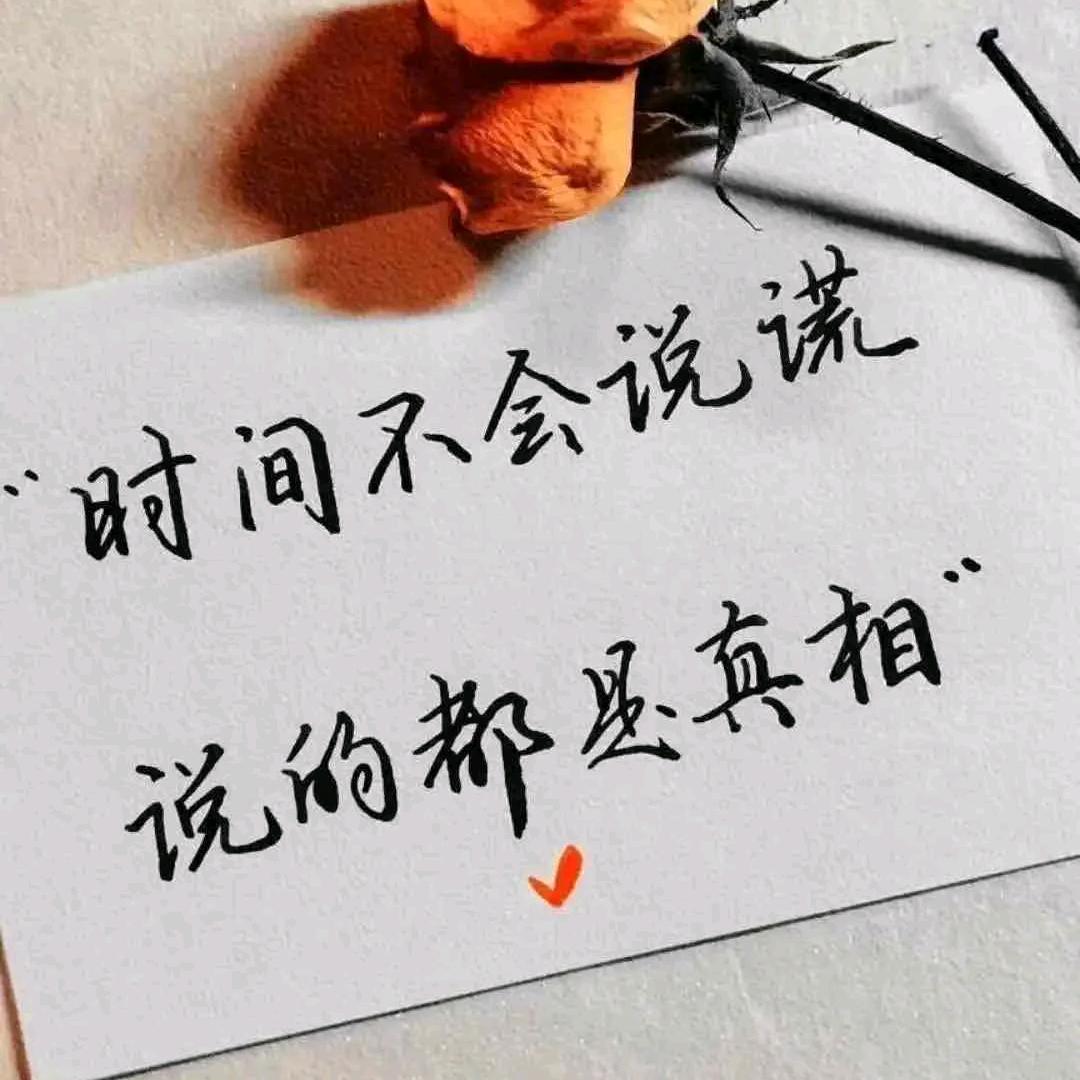 “时间不会说谎
说的都是真相”